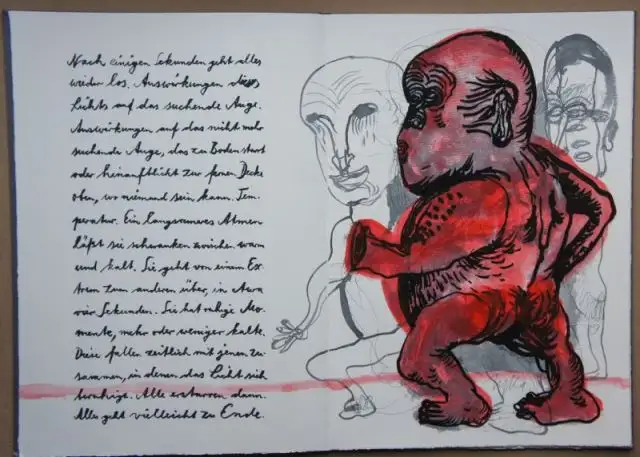 Nach einigen Sekunden geht alles
wieder los. Auswirkungen dieses
Lichts auf das suchende Auge.
Auswirkungen auf das nicht mehr
suchende Auge, das zu Boden starrt
oder hinaufblickt zur fernen Decke
oben, wo niemand sein kann. Tem-
peratur. Ein langsameres Atmen
läßt sie schwanken zwischen warm
und kalt. Sie geht von einem Ex-
trem zum anderen über, in etwa
vier Sekunden. Sie hat ruhige Mo-
mente, mehr oder weniger kalte.
Diese fallen zeitlich mit jenen zu-
sammen, in denen das Licht sich
beruhigt. Alle erstarren dann.
Alles geht vielleicht zu Ende.